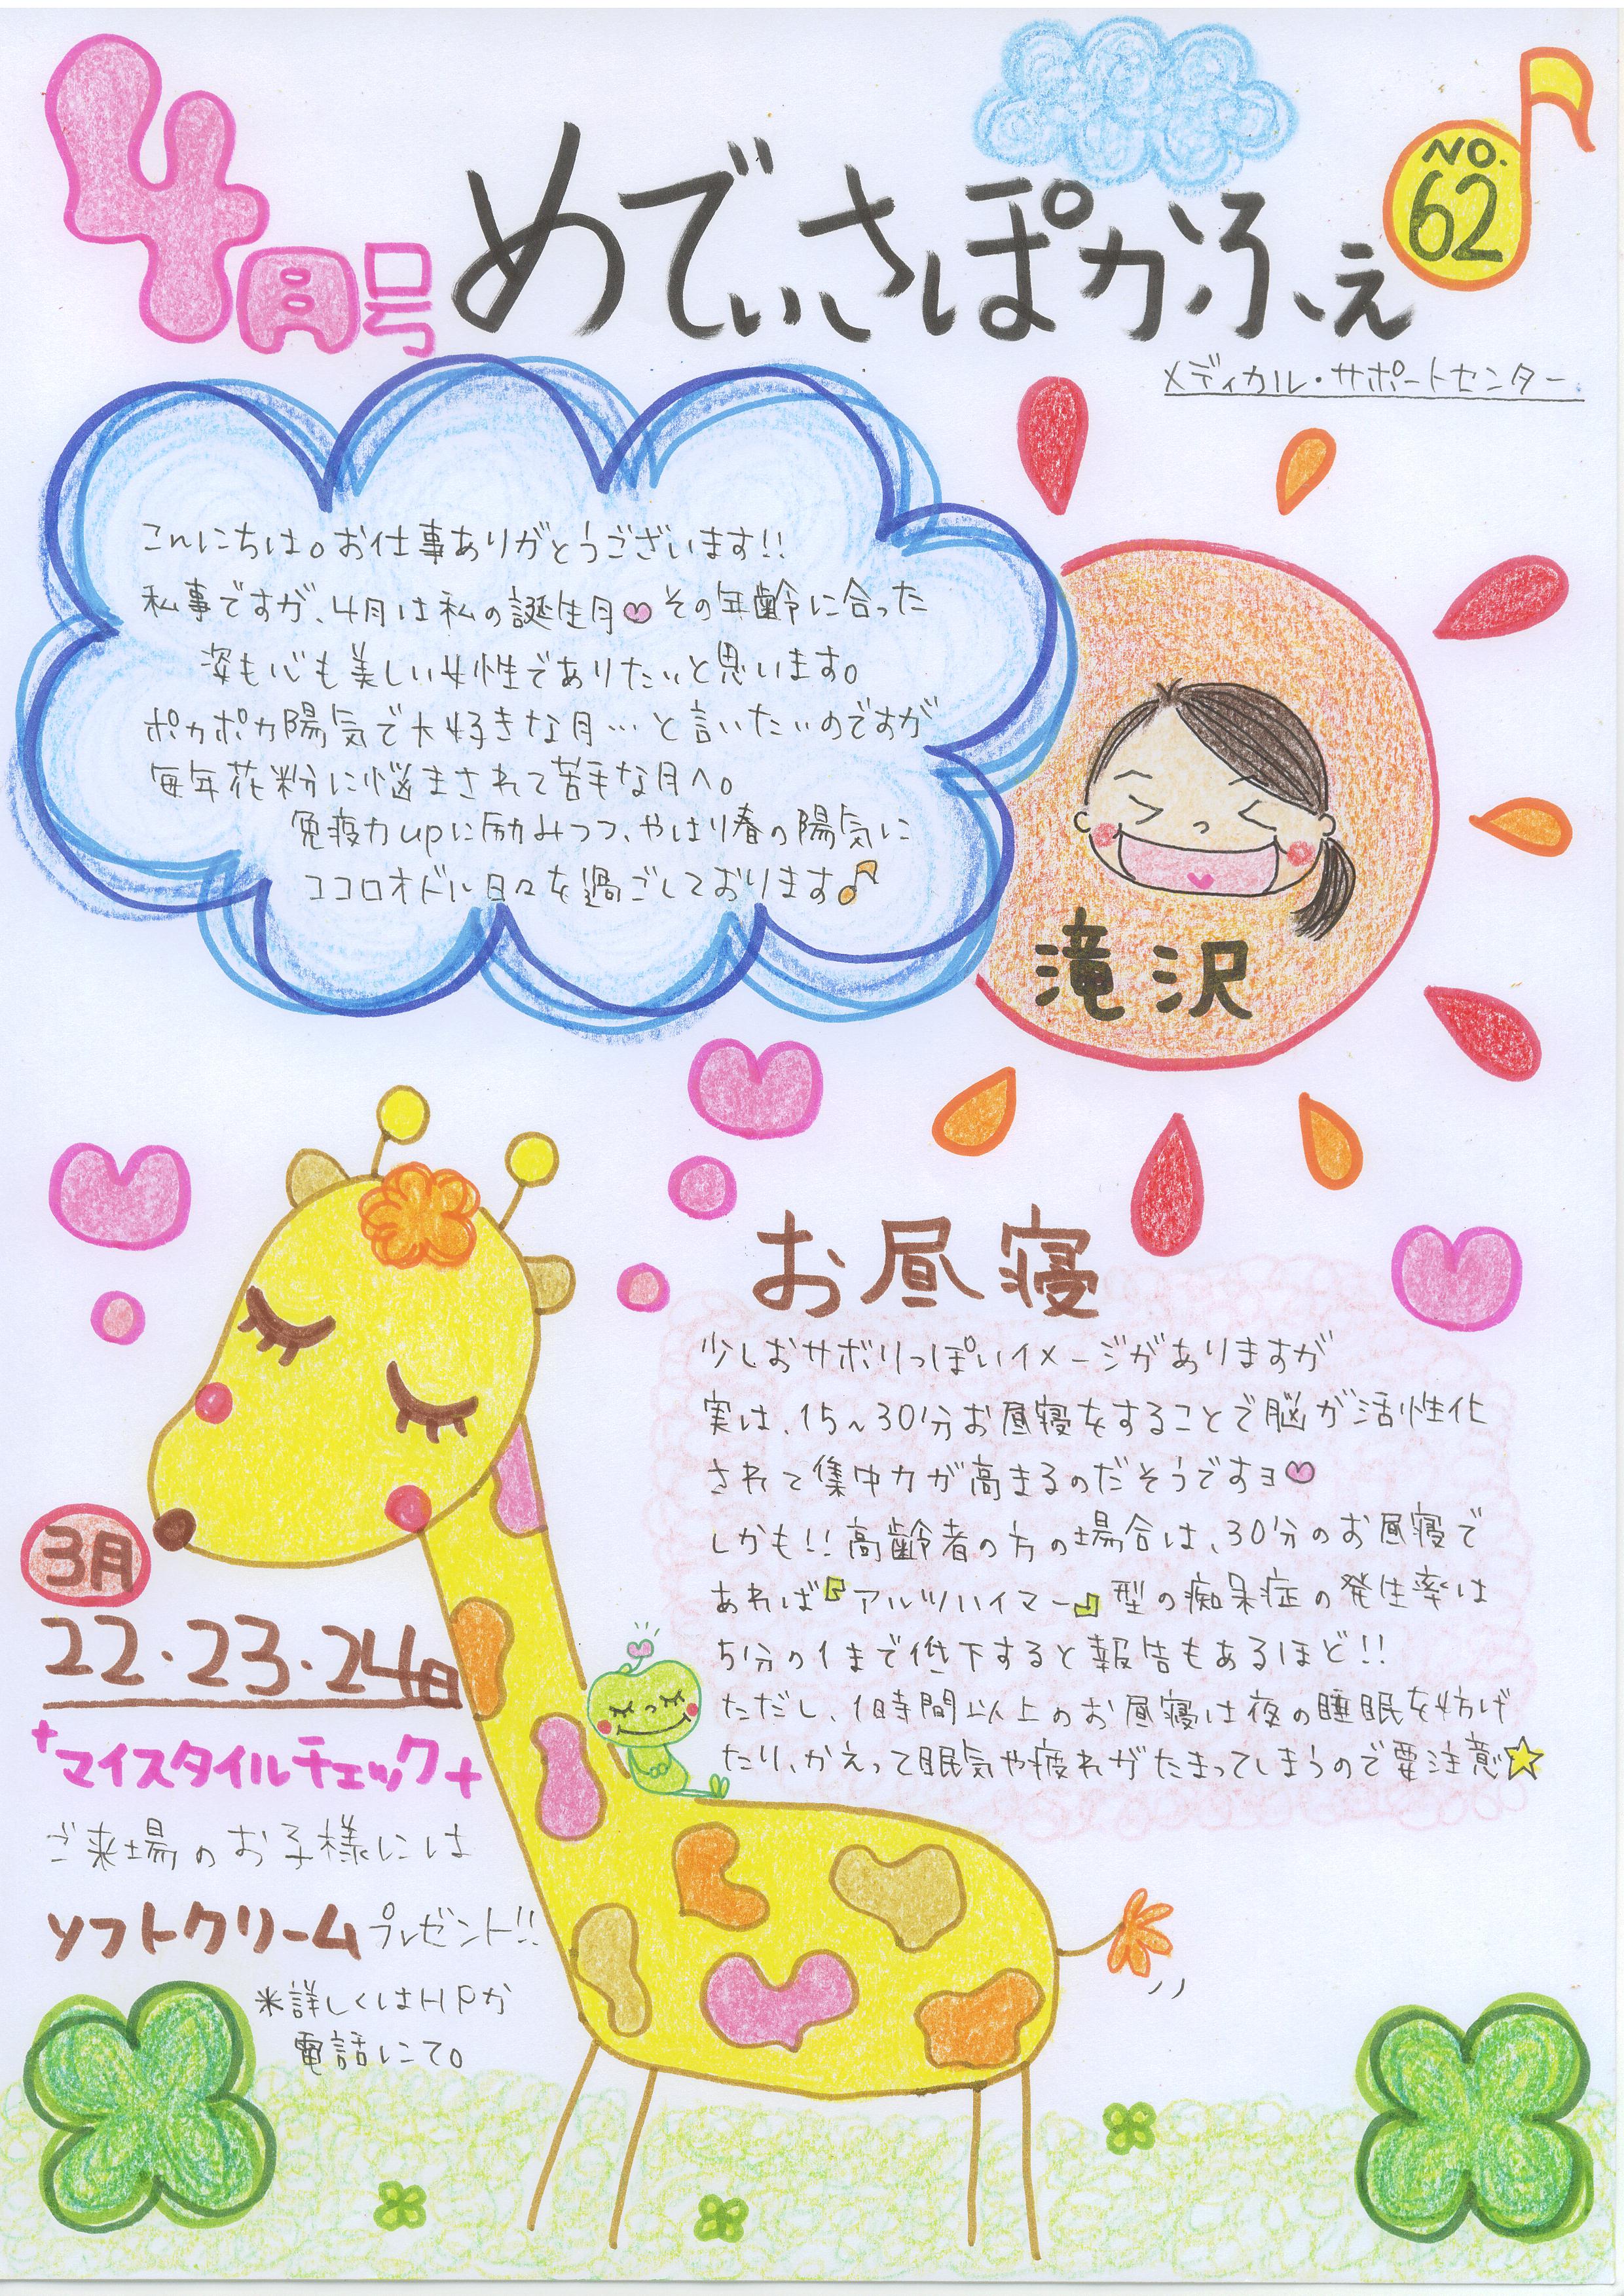 4月号
めでぃさぽかふぇ
NO.
62
メディカル・サポートセンター
こんにちは。お仕事ありがとうございます!!
私事ですが、4月は私の誕生月♡その年齢に合った
姿も心も美しい女性でありたいと思います。
ポカポカ陽気で大好きな月…と言いたいのですが
毎年花粉に悩まされて苦手な月へ。
免疫力upに励みつつ、やはり春の陽気に
ココロオドル日々を過ごしております♪
滝沢
お昼寝
少しおサボりっぽいイメージがありますが
実は、15~30分お昼寝をすることで脳が活性化
されて集中力が高まるのだそうですヨ♡
しかも!!高齢者の方の場合は、30分のお昼寝で
あれば『アルツハイマー』型の痴呆症の発生率は
5分の1まで低下すると報告もあるほど!!
ただし、1時間以上のお昼寝は夜の睡眠を妨げ
たり、かえって眠気や疲れがたまってしまうので要注意☆
3月
22・23・24日
+マイスタイルチェック+
ご来場のお子様には
ソフトクリームプレゼント!!
*詳しくはHPか
電話にて。